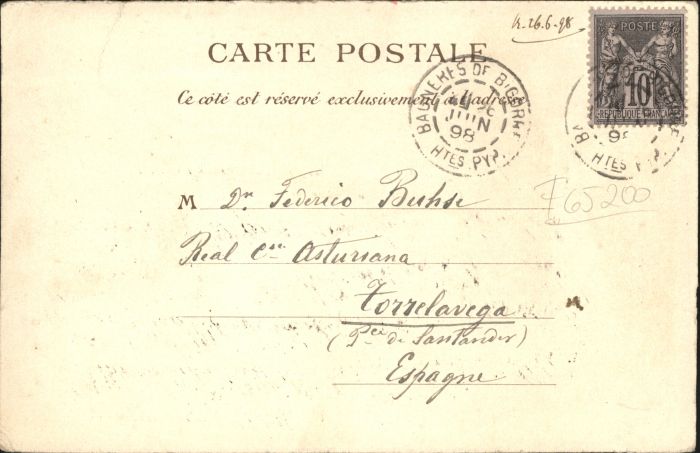 R. 26.6.98
POSTE
10
REPUBLIQUE FRANÇAISE
CARTE POSTALE
Ce côté est réservé exclusivement à l'adresse
BAGNERES DE BIGORRE
JUIN
98
HTES PYR.
HTES P
M Dn Federico Buhse
Real Cia Asturiana
Torrelavega
(Pcia di Santander)
Espagne
65200